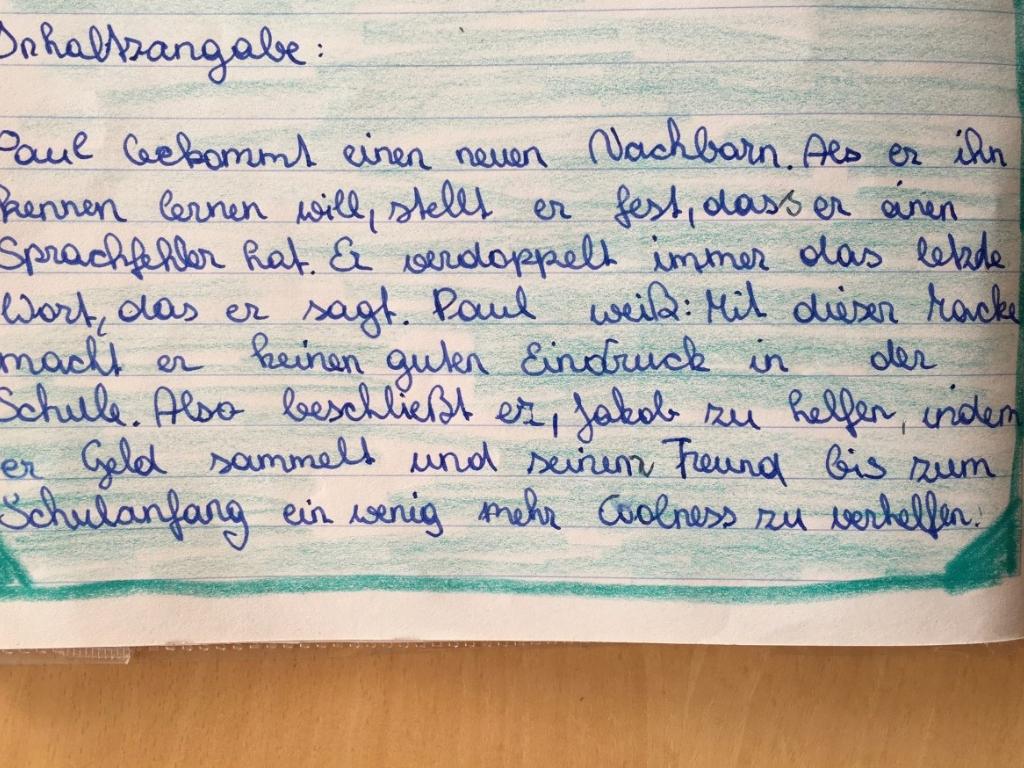 Inhaltsangabe:
Paul bekommt einen neuen Nachbarn. Als er ihn
kennen lernen will, stellt er fest, dass er einen
Sprachfehler hat. Er verdoppelt immer das letzde
Wort, das er sagt. Paul weiß: Mit dieser Macke
macht er keinen guten Eindruck in der
Schule. Also beschließt er, Jakob zu helfen, indem
er Geld sammelt und seinem Freund bis zum
Schulanfang ein wenig mehr Coolness zu verhelfen.